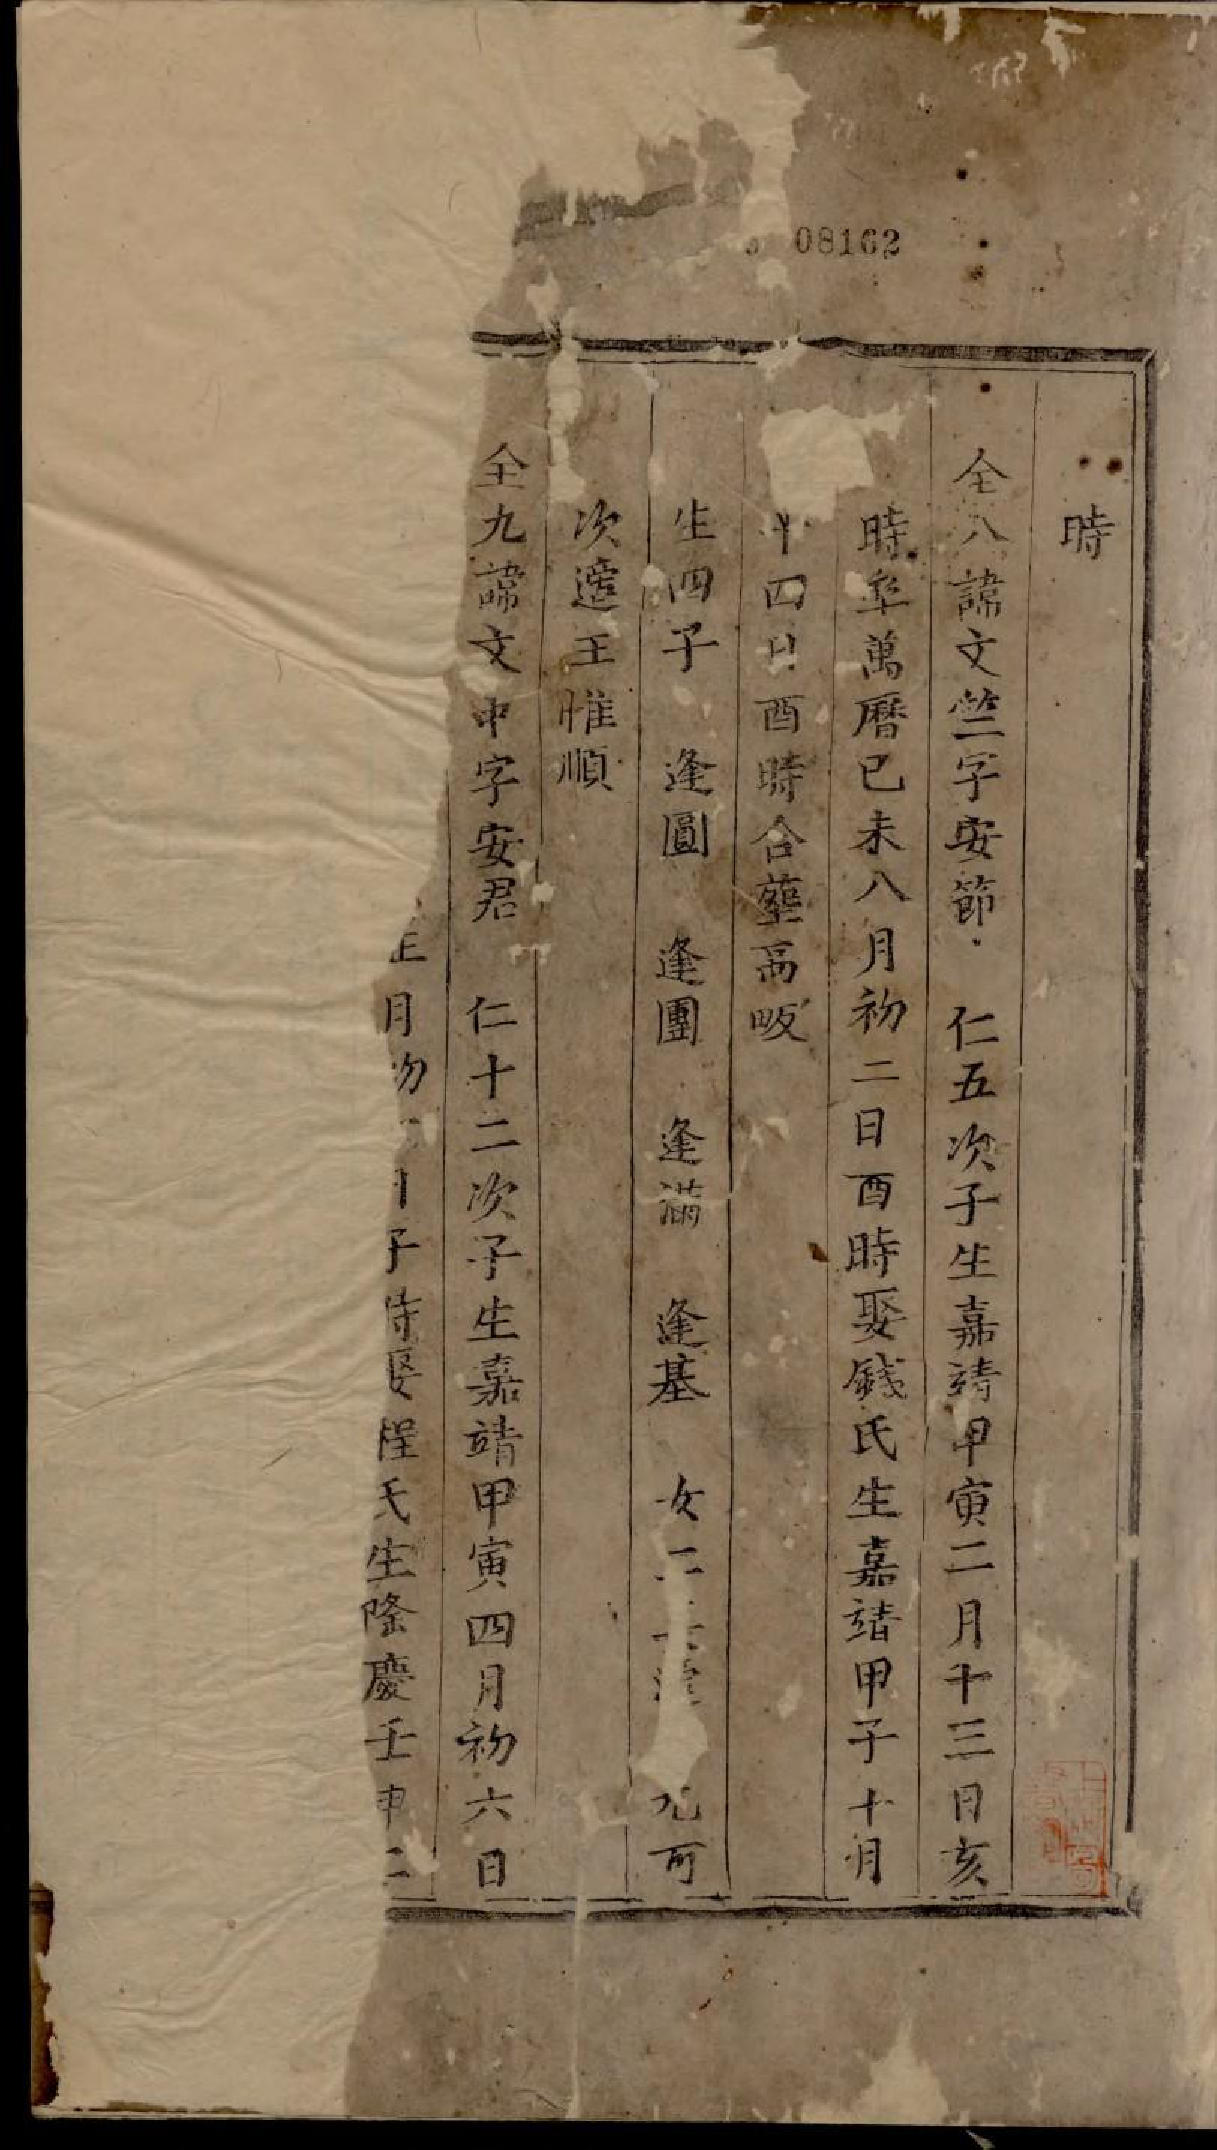 08162
時
全八諱文竺字安節 仁五次子生嘉靖甲寅二月十三日亥
時卒萬曆己未八月初二日酉時娶錢氏生嘉靖甲子十月
十四日酉時合葬畈
生四子 逢圓 逢團 逢滿 逢基 女二 可
次適王惟順
全九諱文中字安君 仁十二次子生嘉靖甲寅四月初六日
正月初 子時娶程氏生隆慶壬申二